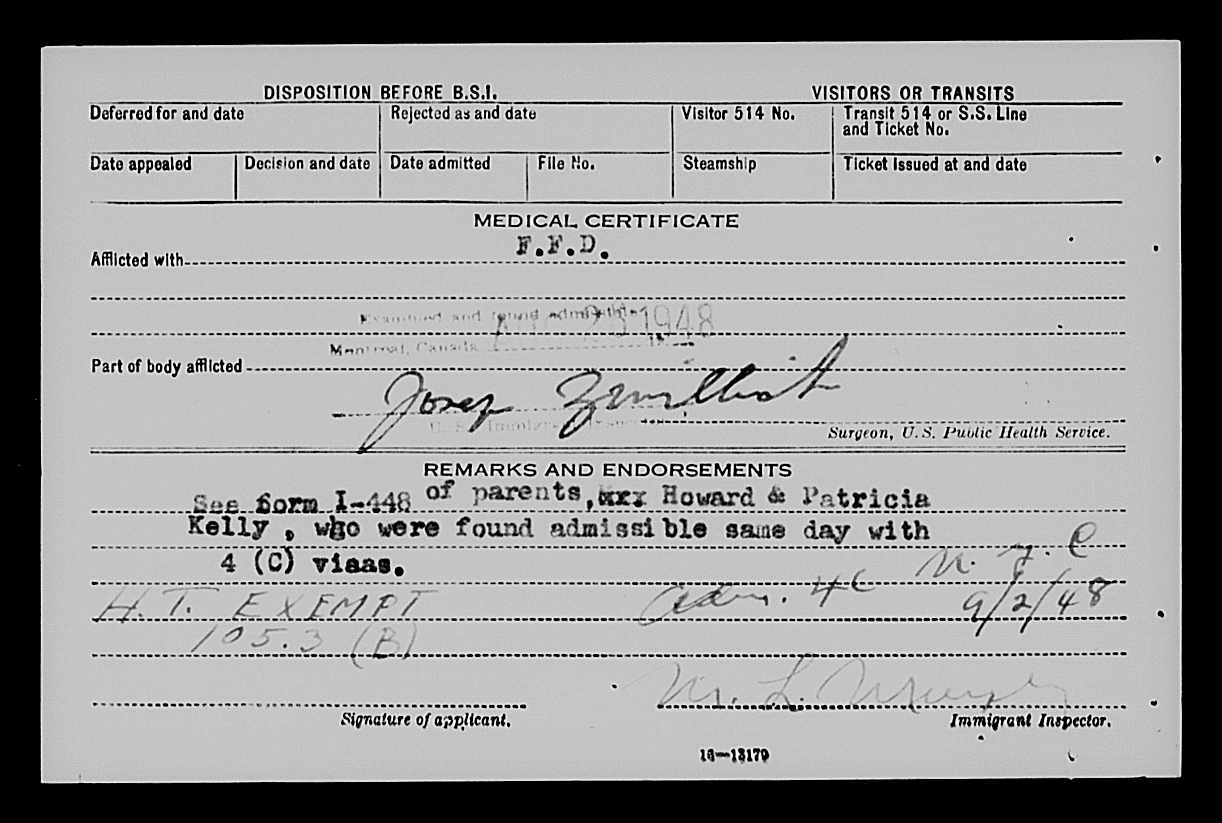 DISPOSITION BEFORE B.S.I. VISITORS OR TRANSITS
Deferred for and date Rejected as and date Visitor 514 No. Transit 514 or S.S. Line and Ticket No.
Date appealed Decision and date Date admitted File No. Steamship Ticket issued at and date
MEDICAL CERTIFICATE
F.F.D.
Afflicted with
Examined and found admissible
1948
Montreal, Canada
Part of body afflicted
Surgeon, U.S. Public Health Service.
REMARKS AND ENDORSEMENTS
See form I-448 of parents, Howard & Patricia
Kelly, who were found admissible same day with
4 (C) visas.
H.T. EXEMPT adm. 4C 9/2/48
105.3 (B)
M. L.
Signature of applicant. Immigrant Inspector.
16—13170